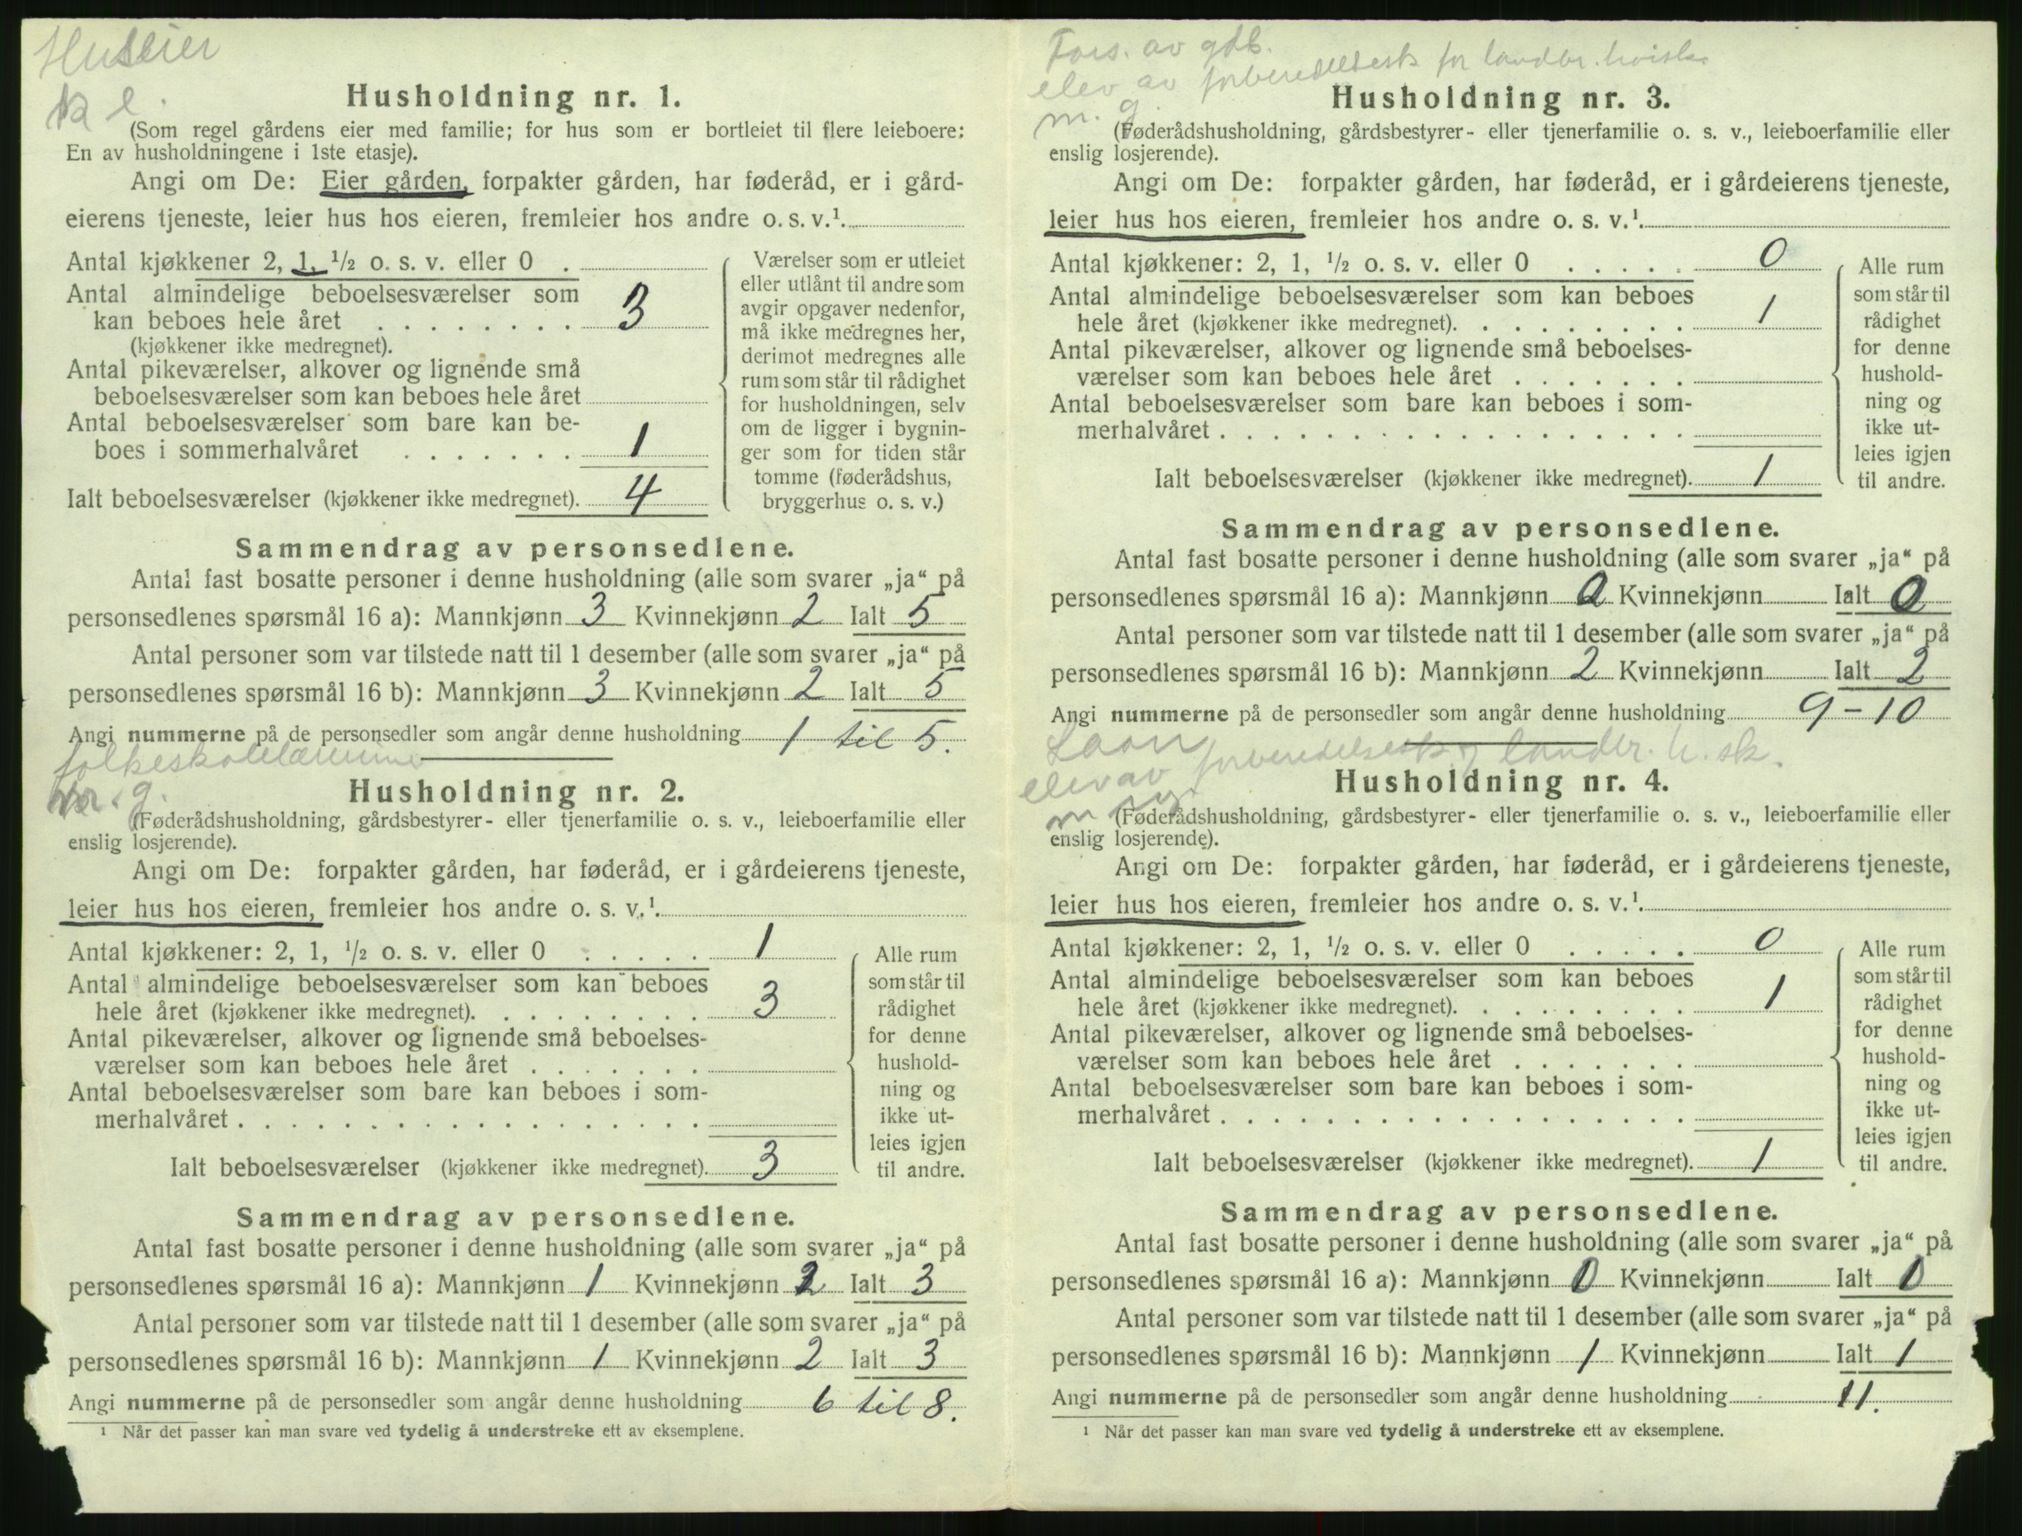 Huseier
Husholdning nr. 1.
(Som regel gårdens eier med familie; for hus som er bortleiet til flere leieboere:
En av husholdningene i 1ste etasje).
Angi om De: Eier gården, forpakter gården, har føderåd, er i gård-
eierens tjeneste, leier hus hos eieren, fremleier hos andre o. s. v.¹.
Antal kjøkkener 2, 1, ½ o. s. v. eller 0 .
Antal almindelige beboelsesværelser som
kan beboes hele året . . . . . . . . 3
(kjøkkener ikke medregnet).
Antal pikeværelser, alkover og lignende små
beboelsesværelser som kan beboes hele året
Antal beboelsesværelser som bare kan be-
boes i sommerhalvåret . . . . . . . 1
Ialt beboelsesværelser (kjøkkener ikke medregnet). 4
Værelser som er utleiet
eller utlånt til andre som
avgir opgaver nedenfor,
må ikke medregnes her,
derimot medregnes alle
rum som står til rådighet
for husholdningen, selv
om de ligger i bygnin-
ger som for tiden står
tomme (føderådshus,
bryggerhus o. s. v.)
Sammendrag av personsedlene.
Antal fast bosatte personer i denne husholdning (alle som svarer „ja“ på
personsedlenes spørsmål 16 a): Mannkjønn 3 Kvinnekjønn 2 Ialt 5
Antal personer som var tilstede natt til 1 desember (alle som svarer „ja“ på
personsedlenes spørsmål 16 b): Mannkjønn 3 Kvinnekjønn 2 Ialt 5
Angi nummerne på de personsedler som angår denne husholdning 1 til 5.
m. g.
Husholdning nr. 2.
(Føderådshusholdning, gårdsbestyrer- eller tjenerfamilie o. s. v., leieboerfamilie eller
enslig losjerende).
Angi om De: forpakter gården, har føderåd, er i gårdeierens tjeneste,
leier hus hos eieren, fremleier hos andre o. s. v.¹.
Antal kjøkkener: 2, 1, ½ o. s. v. eller 0 . . . . . 1
Antal almindelige beboelsesværelser som kan beboes
hele året (kjøkkener ikke medregnet). . . . . . . . . 3
Antal pikeværelser, alkover og lignende små beboelses-
værelser som kan beboes hele året . . . . . . .
Antal beboelsesværelser som bare kan beboes i som-
merhalvåret . . . . . . . . . . . . . . . . . .
Ialt beboelsesværelser (kjøkkener ikke medregnet). 3
Alle rum
som står til
rådighet
for denne
hushold-
ning og
ikke ut-
leies igjen
til andre.
Sammendrag av personsedlene.
Antal fast bosatte personer i denne husholdning (alle som svarer „ja“ på
personsedlenes spørsmål 16 a): Mannkjønn 1 Kvinnekjønn 2 Ialt 3
Antal personer som var tilstede natt til 1 desember (alle som svarer „ja“ på
personsedlenes spørsmål 16 b): Mannkjønn 1 Kvinnekjønn 2 Ialt 3
Angi nummerne på de personsedler som angår denne husholdning 6 til 8.
¹ Når det passer kan man svare ved tydelig å understreke ett av eksemplene.
Fors. av gdb.
elev av forberedelsessk for landbr. høisk.
m. g.
Husholdning nr. 3.
(Føderådshusholdning, gårdsbestyrer- eller tjenerfamilie o. s. v., leieboerfamilie eller
enslig losjerende).
Angi om De: forpakter gården, har føderåd, er i gårdeierens tjeneste,
leier hus hos eieren, fremleier hos andre o. s. v.¹.
Antal kjøkkener: 2, 1, ½ o. s. v. eller 0 . . . . . 0
Antal almindelige beboelsesværelser som kan beboes
hele året (kjøkkener ikke medregnet). . . . . . . . . 1
Antal pikeværelser, alkover og lignende små beboelses-
værelser som kan beboes hele året . . . . . . .
Antal beboelsesværelser som bare kan beboes i som-
merhalvåret . . . . . . . . . . . . . . . . . .
Ialt beboelsesværelser (kjøkkener ikke medregnet). 1
Alle rum
som står til
rådighet
for denne
hushold-
ning og
ikke ut-
leies igjen
til andre.
Sammendrag av personsedlene.
Antal fast bosatte personer i denne husholdning (alle som svarer „ja“ på
personsedlenes spørsmål 16 a): Mannkjønn 0 Kvinnekjønn Ialt 0
Antal personer som var tilstede natt til 1 desember (alle som svarer „ja“ på
personsedlenes spørsmål 16 b): Mannkjønn 2 Kvinnekjønn Ialt 2
Angi nummerne på de personsedler som angår denne husholdning 9 - 10
elev av forberedelsessk. landbr. h. sk.
Husholdning nr. 4.
(Føderådshusholdning, gårdsbestyrer- eller tjenerfamilie o. s. v., leieboerfamilie eller
enslig losjerende).
Angi om De: forpakter gården, har føderåd, er i gårdeierens tjeneste,
leier hus hos eieren, fremleier hos andre o. s. v.¹.
Antal kjøkkener: 2, 1, ½ o. s. v. eller 0 . . . . . 0
Antal almindelige beboelsesværelser som kan beboes
hele året (kjøkkener ikke medregnet). . . . . . . . . 1
Antal pikeværelser, alkover og lignende små beboelses-
værelser som kan beboes hele året . . . . . . .
Antal beboelsesværelser som bare kan beboes i som-
merhalvåret . . . . . . . . . . . . . . . . . .
Ialt beboelsesværelser (kjøkkener ikke medregnet). 1
Alle rum
som står til
rådighet
for denne
hushold-
ning og
ikke ut-
leies igjen
til andre.
Sammendrag av personsedlene.
Antal fast bosatte personer i denne husholdning (alle som svarer „ja“ på
personsedlenes spørsmål 16 a): Mannkjønn 0 Kvinnekjønn Ialt 0
Antal personer som var tilstede natt til 1 desember (alle som svarer „ja“ på
personsedlenes spørsmål 16 b): Mannkjønn 1 Kvinnekjønn Ialt 1
Angi nummerne på de personsedler som angår denne husholdning 11.
¹ Når det passer kan man svare ved tydelig å understreke ett av eksemplene.